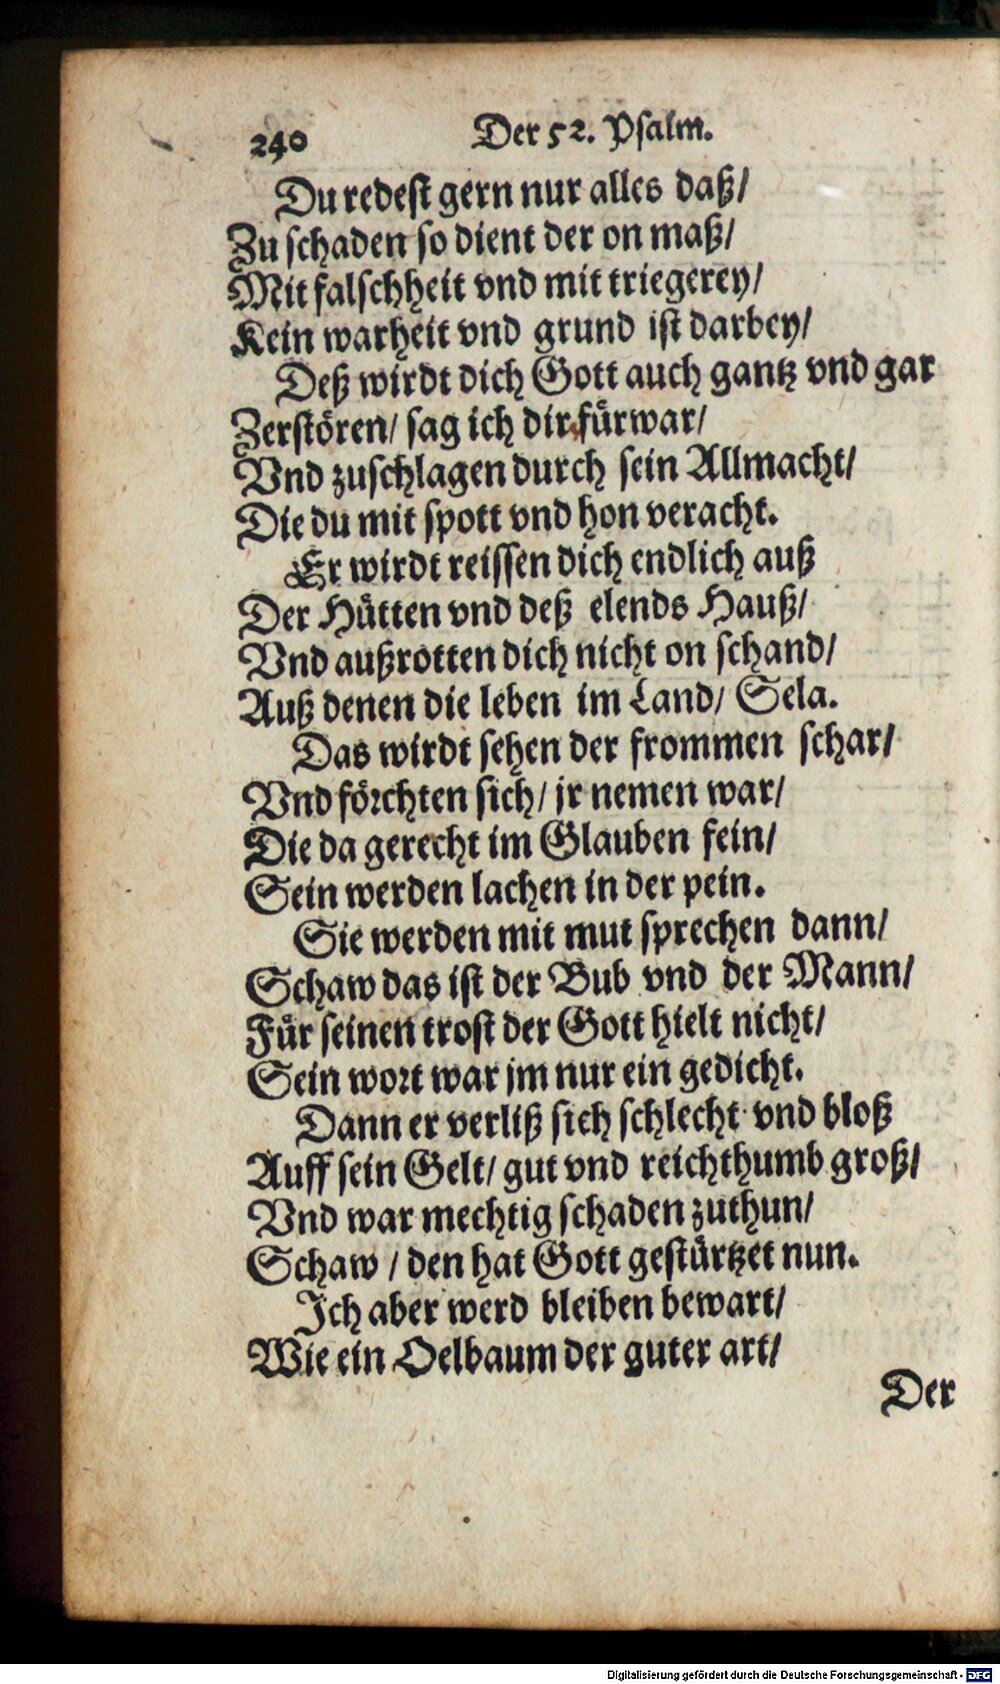 240 Der 52. Psalm.
Du redest gern nur alles daß/
Zu schaden so dient der on maß/
Mit falschheit vnd mit triegerey/
Kein warheit vnd grund ist darbey/
Deß wirdt dich Gott auch gantz vnd gar
Zerstören/ sag ich dir fürwar/
Vnd zuschlagen durch sein Allmacht/
Die du mit spott vnd hon veracht.
Er wirdt reissen dich endlich auß
Der Hütten vnd deß elends Hauß/
Vnd außrotten dich nicht on schand/
Auß denen die leben im Land/ Sela.
Das wirdt sehen der frommen schar/
Vnd förchten sich/ jr nemen war/
Die da gerecht im Glauben fein/
Sein werden lachen in der pein.
Sie werden mit mut sprechen dann/
Schaw das ist der Bub vnd der Mann/
Für seinen trost der Gott hielt nicht/
Sein wort war jm nur ein gedicht.
Dann er verliß sich schlecht vnd bloß
Auff sein Gelt/ gut vnd reichthumb groß/
Vnd war mechtig schaden zuthun/
Schaw / den hat Gott gestürtzet nun.
Ich aber werd bleiben bewart/
Wie ein Oelbaum der guter art/
Der
Digitalisierung gefördert durch die Deutsche Forschungsgemeinschaft - DFG